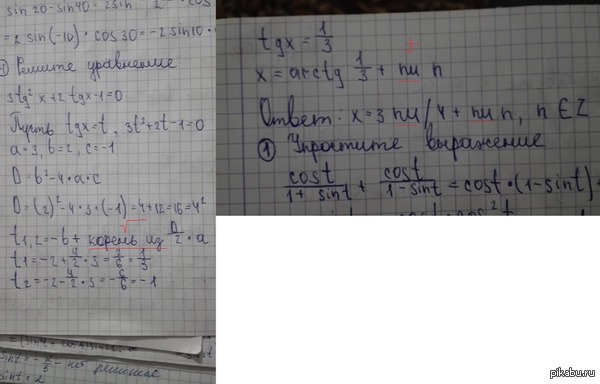 sin20-sin40=2sin
=2 sin(-10)·cos30=-2sin10·
Решите уравнение
3tg²x+2tgx-1=0
Пусть tgx=t, 3t²+2t-1=0
a=3, b=2, c=-1
D=b²-4·a·c
D=(2)²-4·3·(-1)=4+12=16=4²
t1,2=-b+корень из D/2·a
t1=-2+4/2·3=2/6=1/3
t2=-2-4/2·3=-6/6=-1
- нет решения
sint=2
tgx=1/3
x=arctg 1/3+пи n
Ответ: x=3пи/4+пи n, n∈Z
① Упростите выражение
cost/1+sint+cost/1-sint=cost·(1-sint)+
pikabu.ru